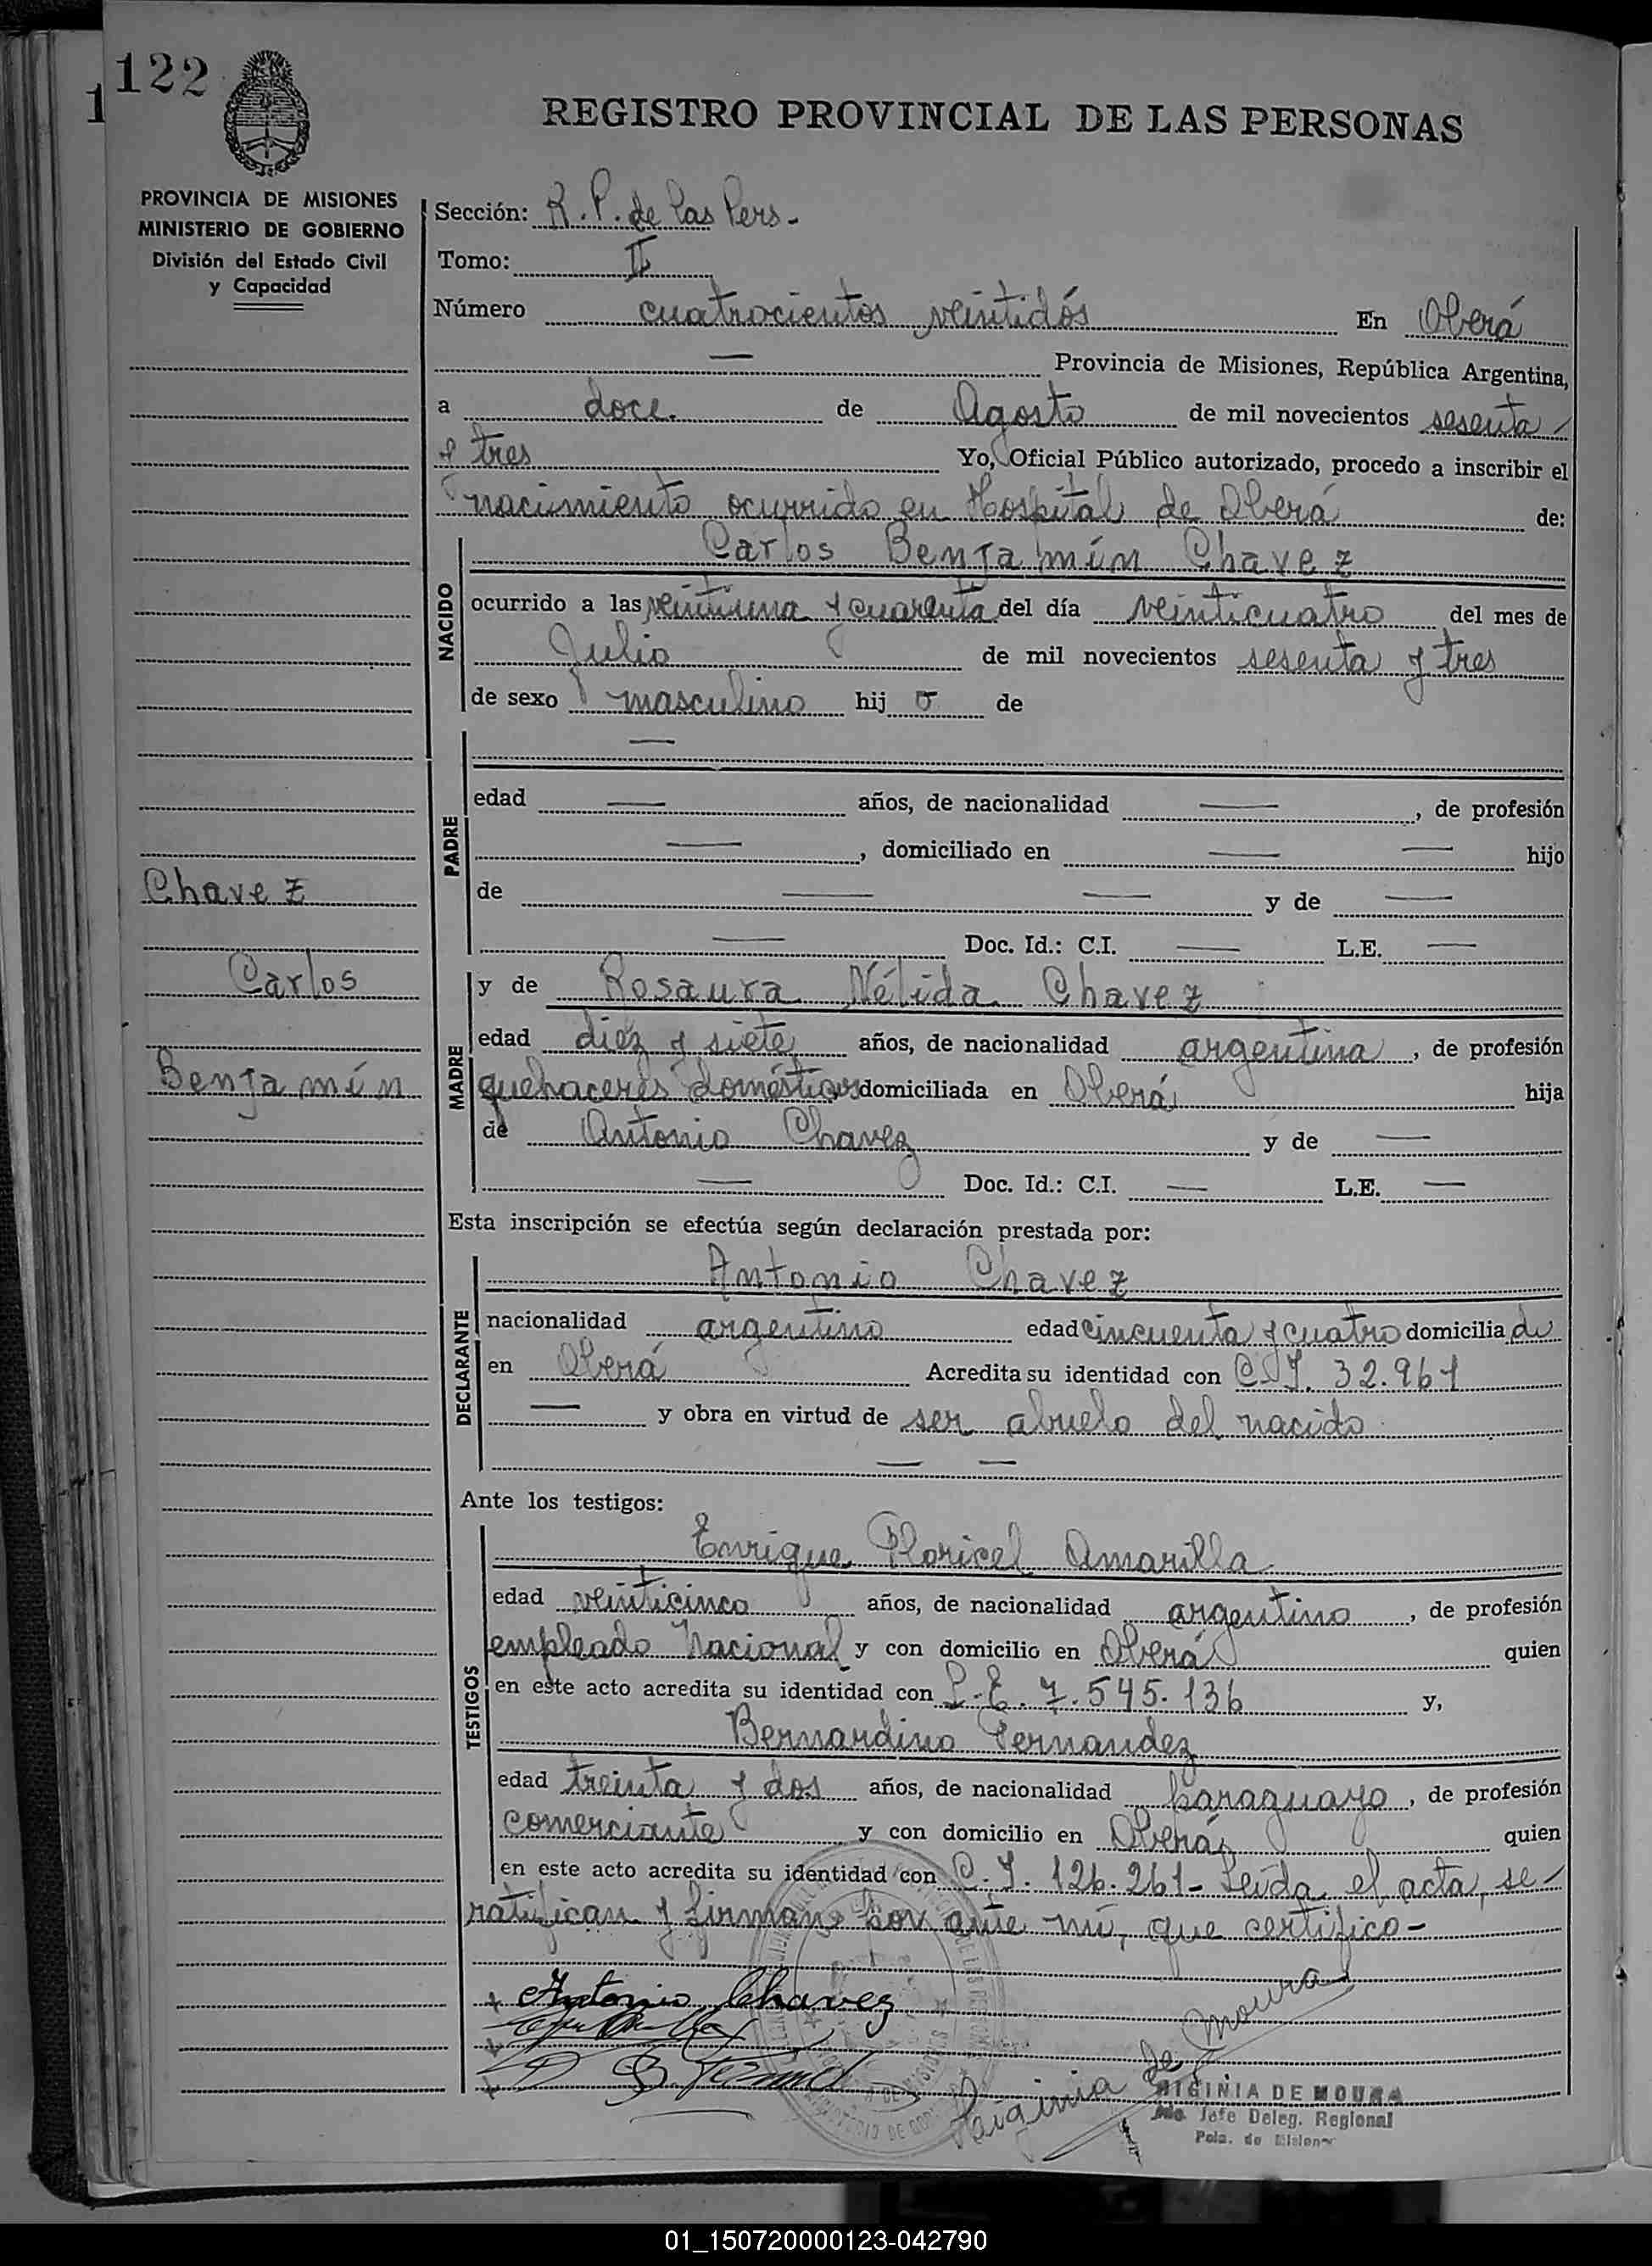 122
1
REGISTRO PROVINCIAL DE LAS PERSONAS
PROVINCIA DE MISIONES
MINISTERIO DE GOBIERNO
División del Estado Civil
y Capacidad
Sección: R. P. de las Pers -
Tomo: II
Número cuatrocientos veintidós En Oberá
— Provincia de Misiones, República Argentina,
a doce de Agosto de mil novecientos sesenta
y tres Yo, Oficial Público autorizado, procedo a inscribir el
nacimiento ocurrido en Hospital de Oberá de:
NACIDO
Carlos Benjamín Chavez
ocurrido a las veintiuna y cuarenta del día veinticuatro del mes de
Julio de mil novecientos sesenta y tres
de sexo masculino hijo de
PADRE
—
edad — años, de nacionalidad —, de profesión
—, domiciliado en — — hijo
de — — y de —
— Doc. Id.: C.I. — L.E. —
Chavez
Carlos
Benjamín
MADRE
y de Rosaura Nélida Chavez
edad diez y siete años, de nacionalidad argentina, de profesión
quehaceres domésticos domiciliada en Oberá hija
de Antonio Chavez y de —
— Doc. Id.: C.I. — L.E. —
Esta inscripción se efectúa según declaración prestada por:
DECLARANTE
Antonio Chavez
nacionalidad argentino edad cincuenta y cuatro domiciliado
en Oberá Acredita su identidad con C.I. 32.961
— y obra en virtud de ser abuelo del nacido
— —
Ante los testigos:
TESTIGOS
Enrique Floricel Amarilla
edad veinticinco años, de nacionalidad argentino, de profesión
empleado Nacional y con domicilio en Oberá quien
en este acto acredita su identidad con L.E. 7.545.136 y,
Bernardino Fernandez
edad treinta y dos años, de nacionalidad paraguayo, de profesión
comerciante y con domicilio en Oberá quien
en este acto acredita su identidad con C.I. 126.261 - Leída el acta, se
ratifican y firman por ante mí, que certifico -
Antonio Chavez
Higinia de Moura
HIGINIA DE MOURA
Jefe Deleg. Regional
Pcia. de Misiones
01_150720000123-042790